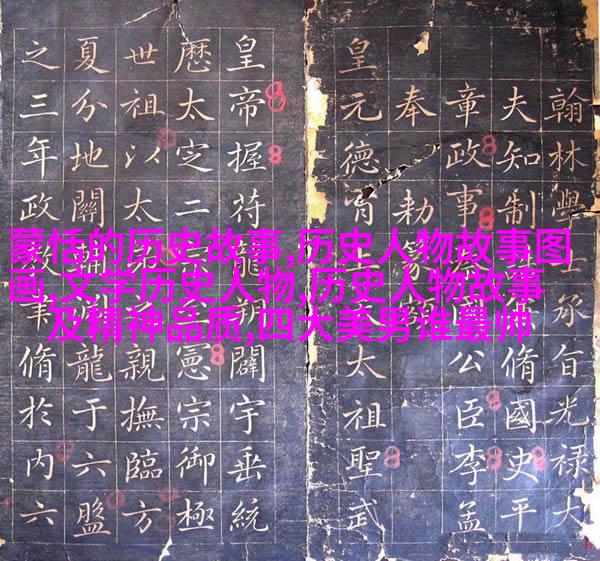 蒙恬的历史故事,历史人物故事图
画,文学历史人物,历史人物故事
及精神品质,四大美男谁最帅
翰林學士承旨光祿大
夫知制脩國史平
章政事國公臣李孟
奉勅篆
皇元德太祖聖武
皇帝握符龍朔闢宇垂統
厯太定二憲宗御極
世祖以太弟親撫臨方
夏分地關龍于六盤
之三年政脩於内六